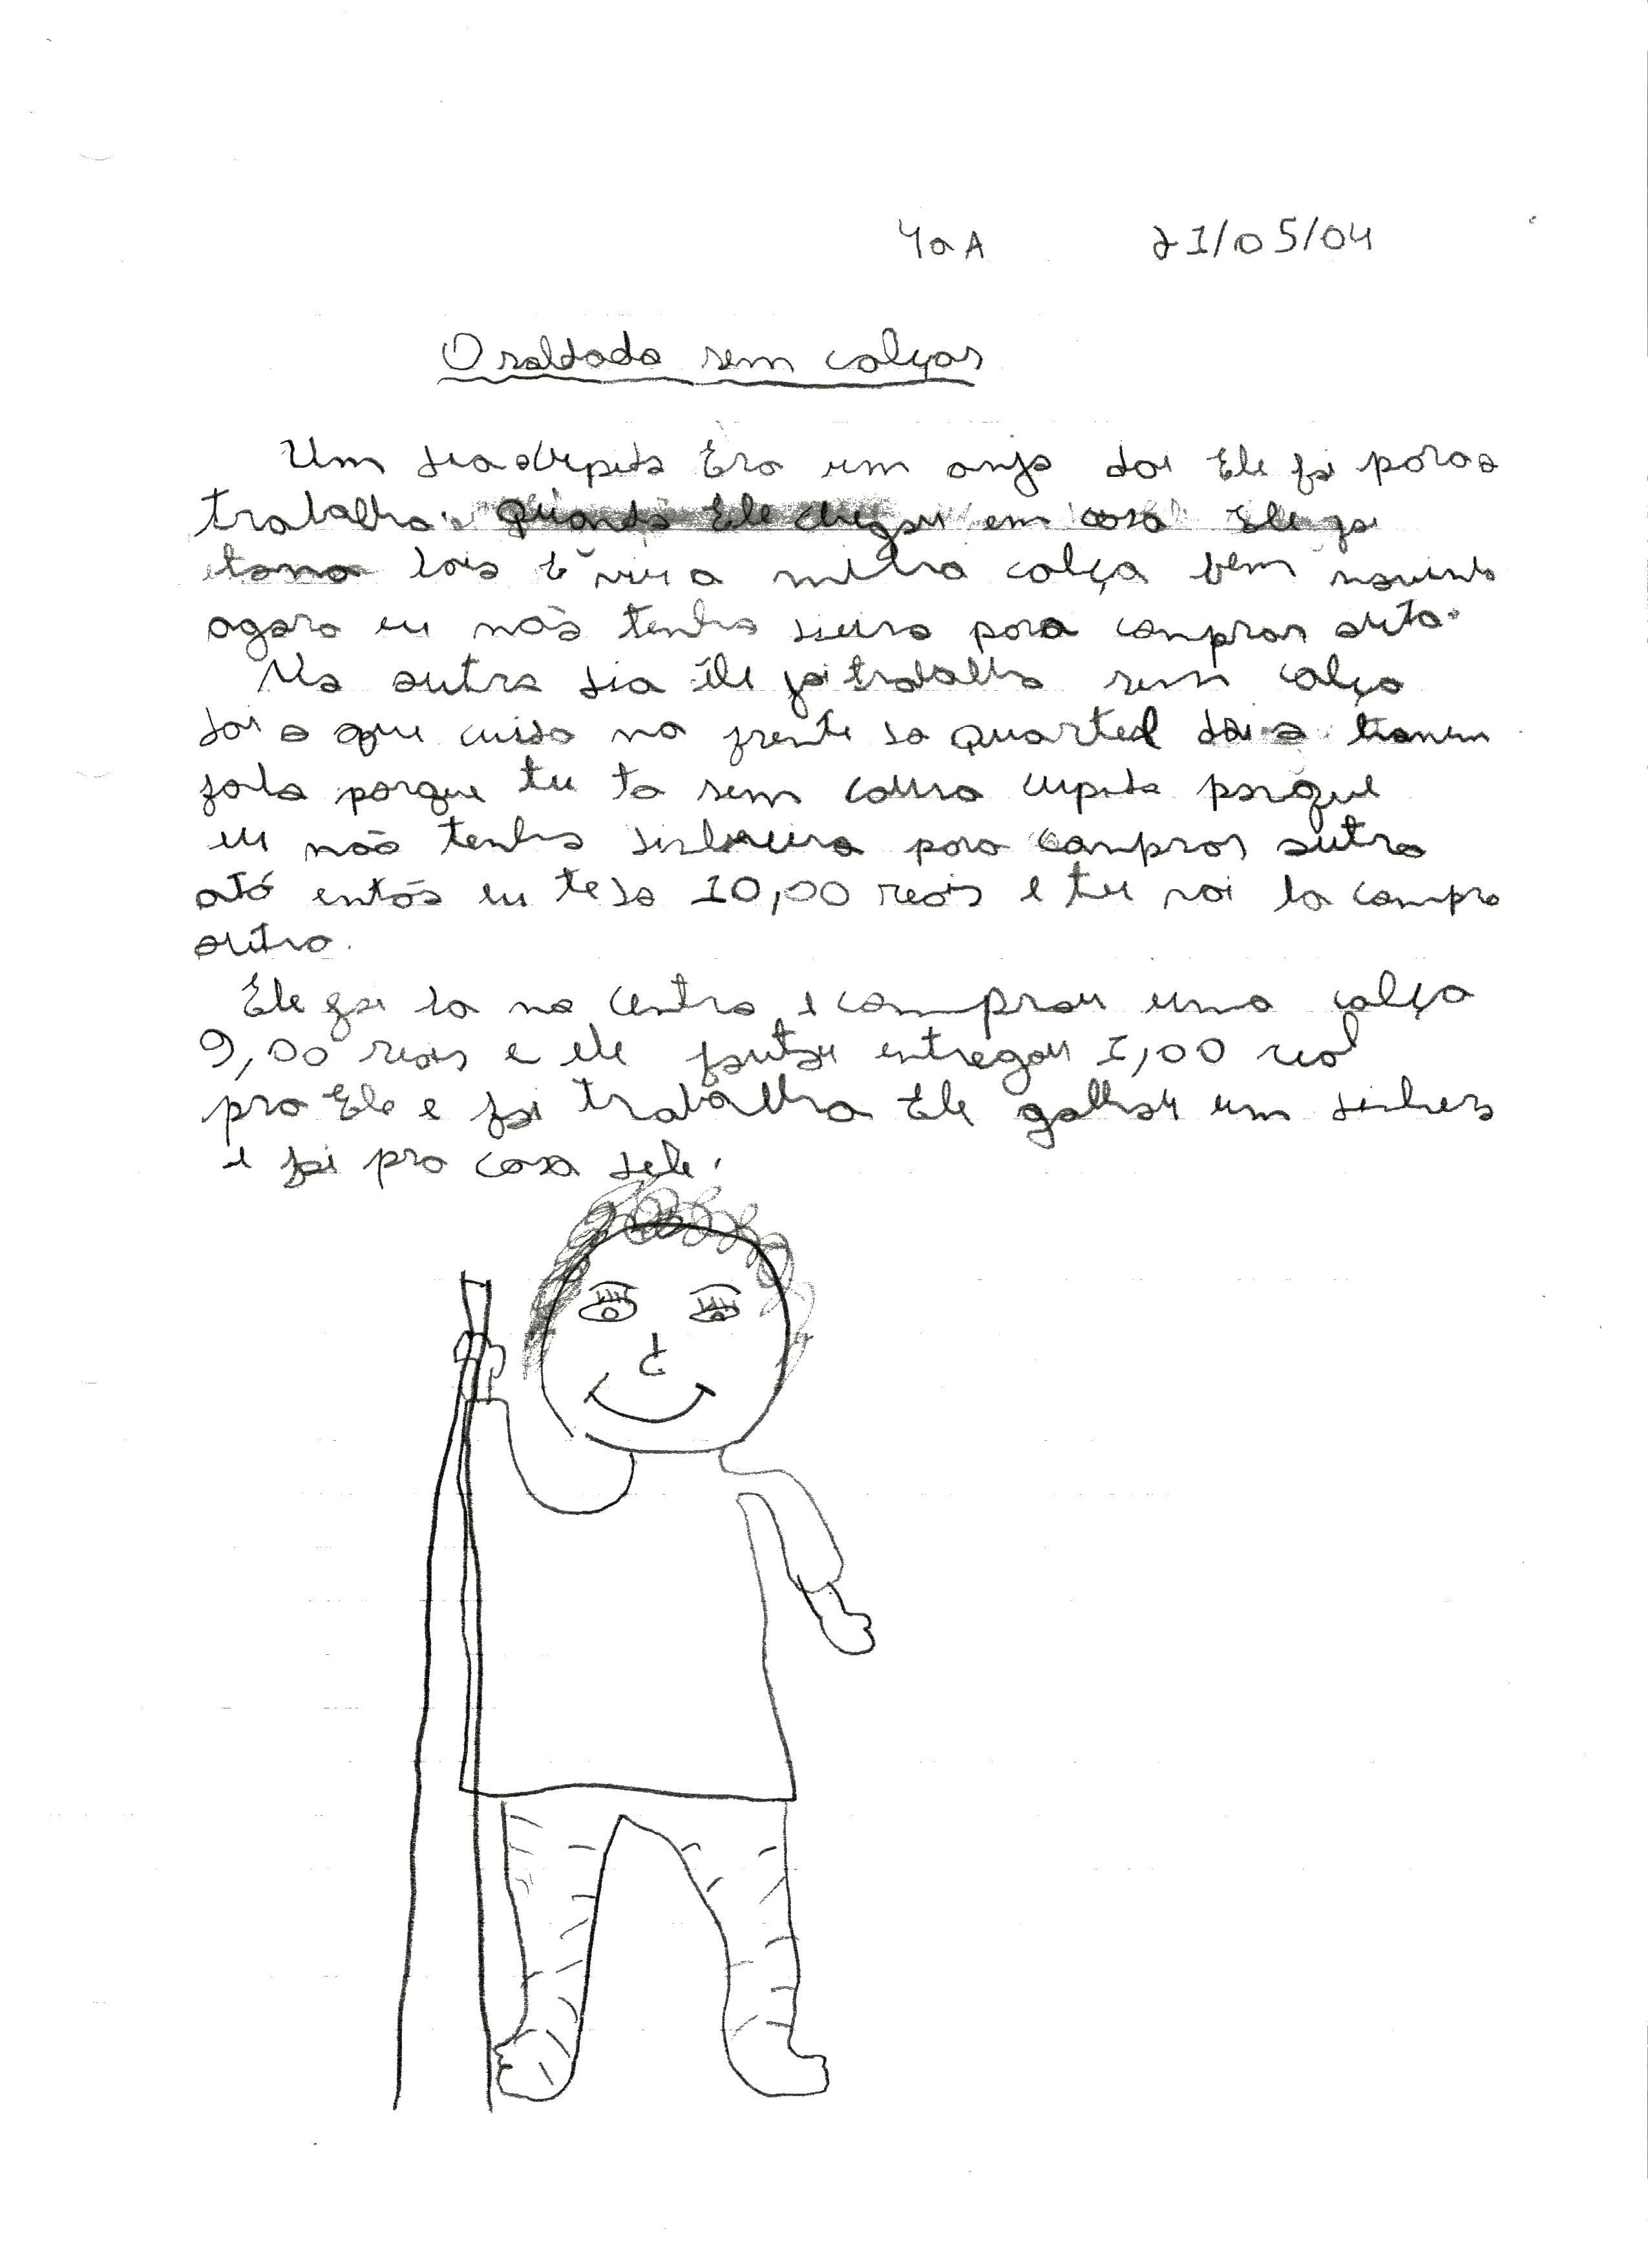 4a A 21/05/04
O soldado sem calças
Um dia o cupido Era um anjo dai Ele foi para o
trabalho. Quando Ele chegou em casa Ele foi
minha calça bem
agora eu não tenho para comprar outa.
No outro dia ele foi trabalho sem calça
dai o que cuida na frente do quartel dai o
fala porque tu ta sem cupido porque
eu não tenho para comprar outra
ató entõo eu te do 10,00 reais e tu vai la compra
outra.
Ele foi la no centro e comprou uma calça
9,00 reais e ele entregou 1,00 real
pra Ele e foi trabalha Ele galhou um
e foi pra casa dele.